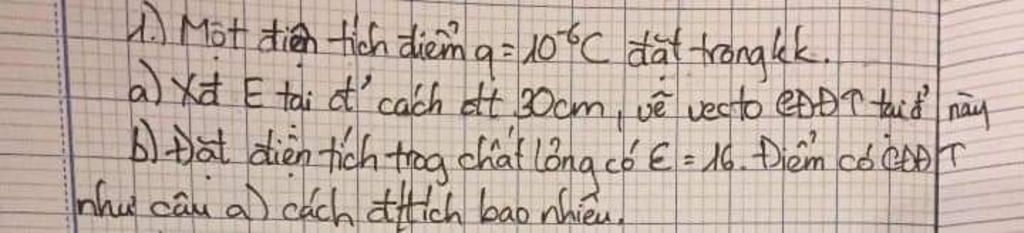 1.) Một điện tích điểm q = 10⁻⁶C đặt trong kk.
a) Xđ E tại đ' cách đt 30cm, vẽ vecto CĐĐT tại đ' này
b) Đặt điện tích trog chất lỏng có ε = 16. Điểm có CĐĐT
như câu a) cách đtích bao nhiêu.